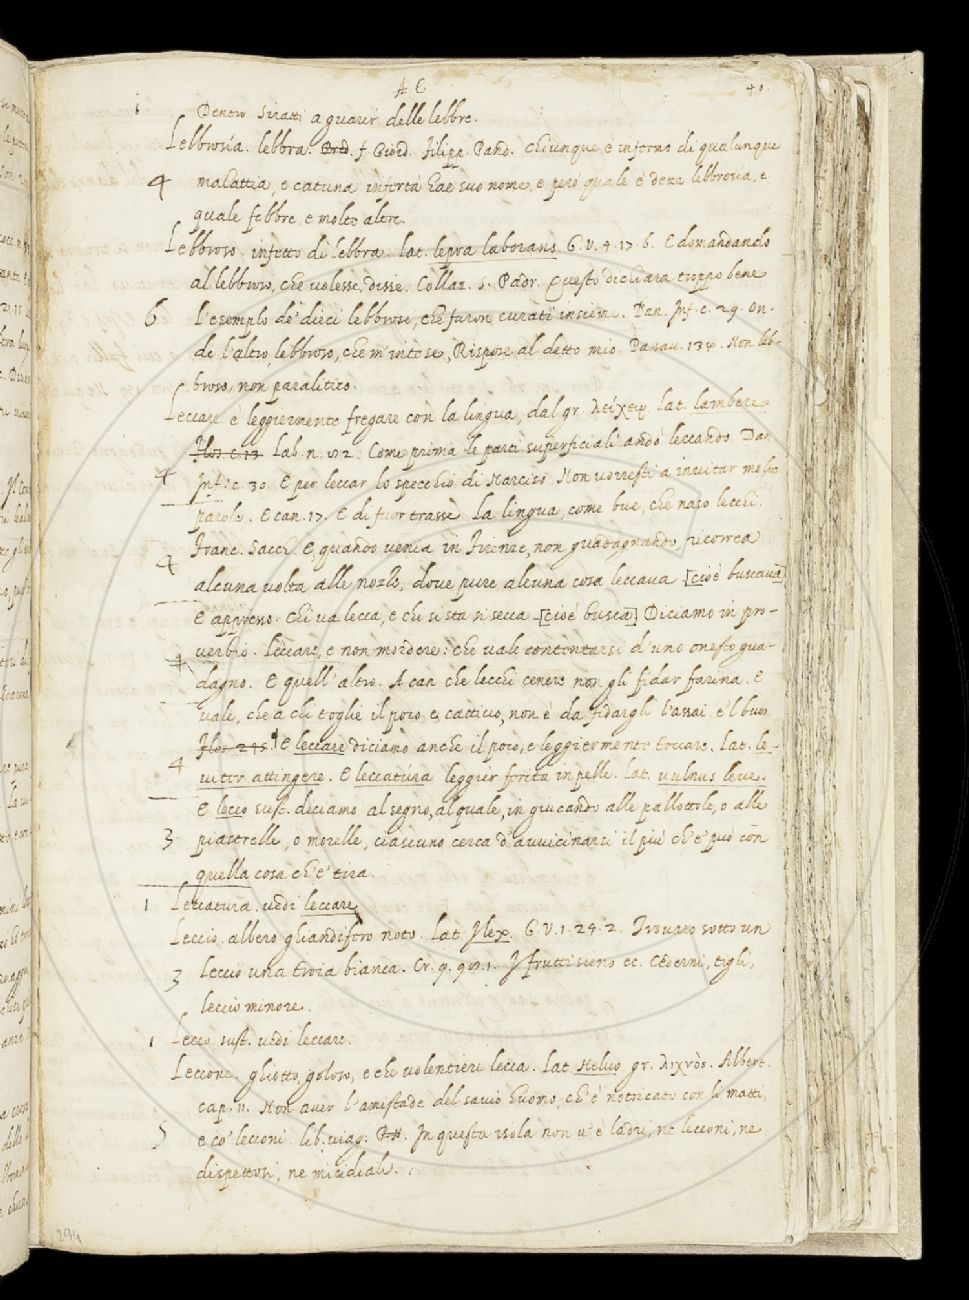 L E 40.
1 Dentro Siratti a guarir delle lebbre.
Lebbrosía. lebbra. f. Giord. Filipp. Pand. chiunque è infermo di qualunque
4 malattia, e catuna inferta hae suo nome, e però quale è detta lebbrosia, e
quale febbre, e molte altre.
Lebbroso. infetto di lebbra. lat. lepra laborans. G. V. 4. 17. 6. E domandando
al lebbroso, che volesse, disse. Collaz. S. Padr. Questo dichiara troppo bene
6 l'esemplo de' dieci lebbrosi, che furon curati insieme. Dan. Inf. c. 29. On-
de l'altro lebbroso, che m'intese, Rispose al detto mio. Pataff. Non leb-
broso, non paralitico.
Leccare è leggiermente fregare con la lingua, dal gr. λείχειν lat. lambere
Lab. n. Come prima le parti superficiali andò leccando. Dan.
4 Inf. c. 30. E per leccar lo specchio di Narciso Non vorresti a invitar molte
parole. E can. 17. E di fuor trasse La lingua, come bue, che naso lecchi.
Franc. Sacch. E, quando venia in Firenze, non guadagnando ricorrea
4 alcuna volta alle nozze, dove pure alcuna cosa leccava [cioè buscava]
E appresso. Chi va lecca, e chi si sta si secca. [cioè busca] Diciamo in pro-
verbio. Leccare, e non mordere: che vale contentarsi d'uno onesto gua-
4 dagno. E quell'altro. A can che lecchi cenere non gli fidar farina. E
vale, che a chi toglie il poco, e cattivo, non è da fidargli l'assai e'l buon.
E leccare diciamo anche il poco, e leggiermente toccare. Lat. le-
4 viter attingere. E leccatúra leggier ferita in pelle. lat. vulnus leve.
E lecco sust. diciamo al segno, al quale, in giucando alle pallottole, o alle
3 piastrelle, o morelle, ciascuno cerca d'avvicinarsi il più ch'e' può con
quella cosa ch'e' tira.
1 Leccatura. vedi leccare
Leccio. albero ghiandifero noto. Lat. Ilex. G. V. 1. 24. 2. Trovaro sotto un
3 leccio una troia bianca. Cr. I frutti sieno ec. Cederni, tigli,
leccio minore.
1 Lecco. sust. vedi leccare.
Leccone. ghiotto, goloso, e che volentieri lecca. Lat. Helluo gr. λιχνὸς. Albert.
cap. Non aver l'amistade del savio huomo, ch'è notricato con li matti,
5 e co' lecconi. lib. viag. In questa isola non v'è ladri, ne lecconi, ne
dispettosi, ne micidiali.
294